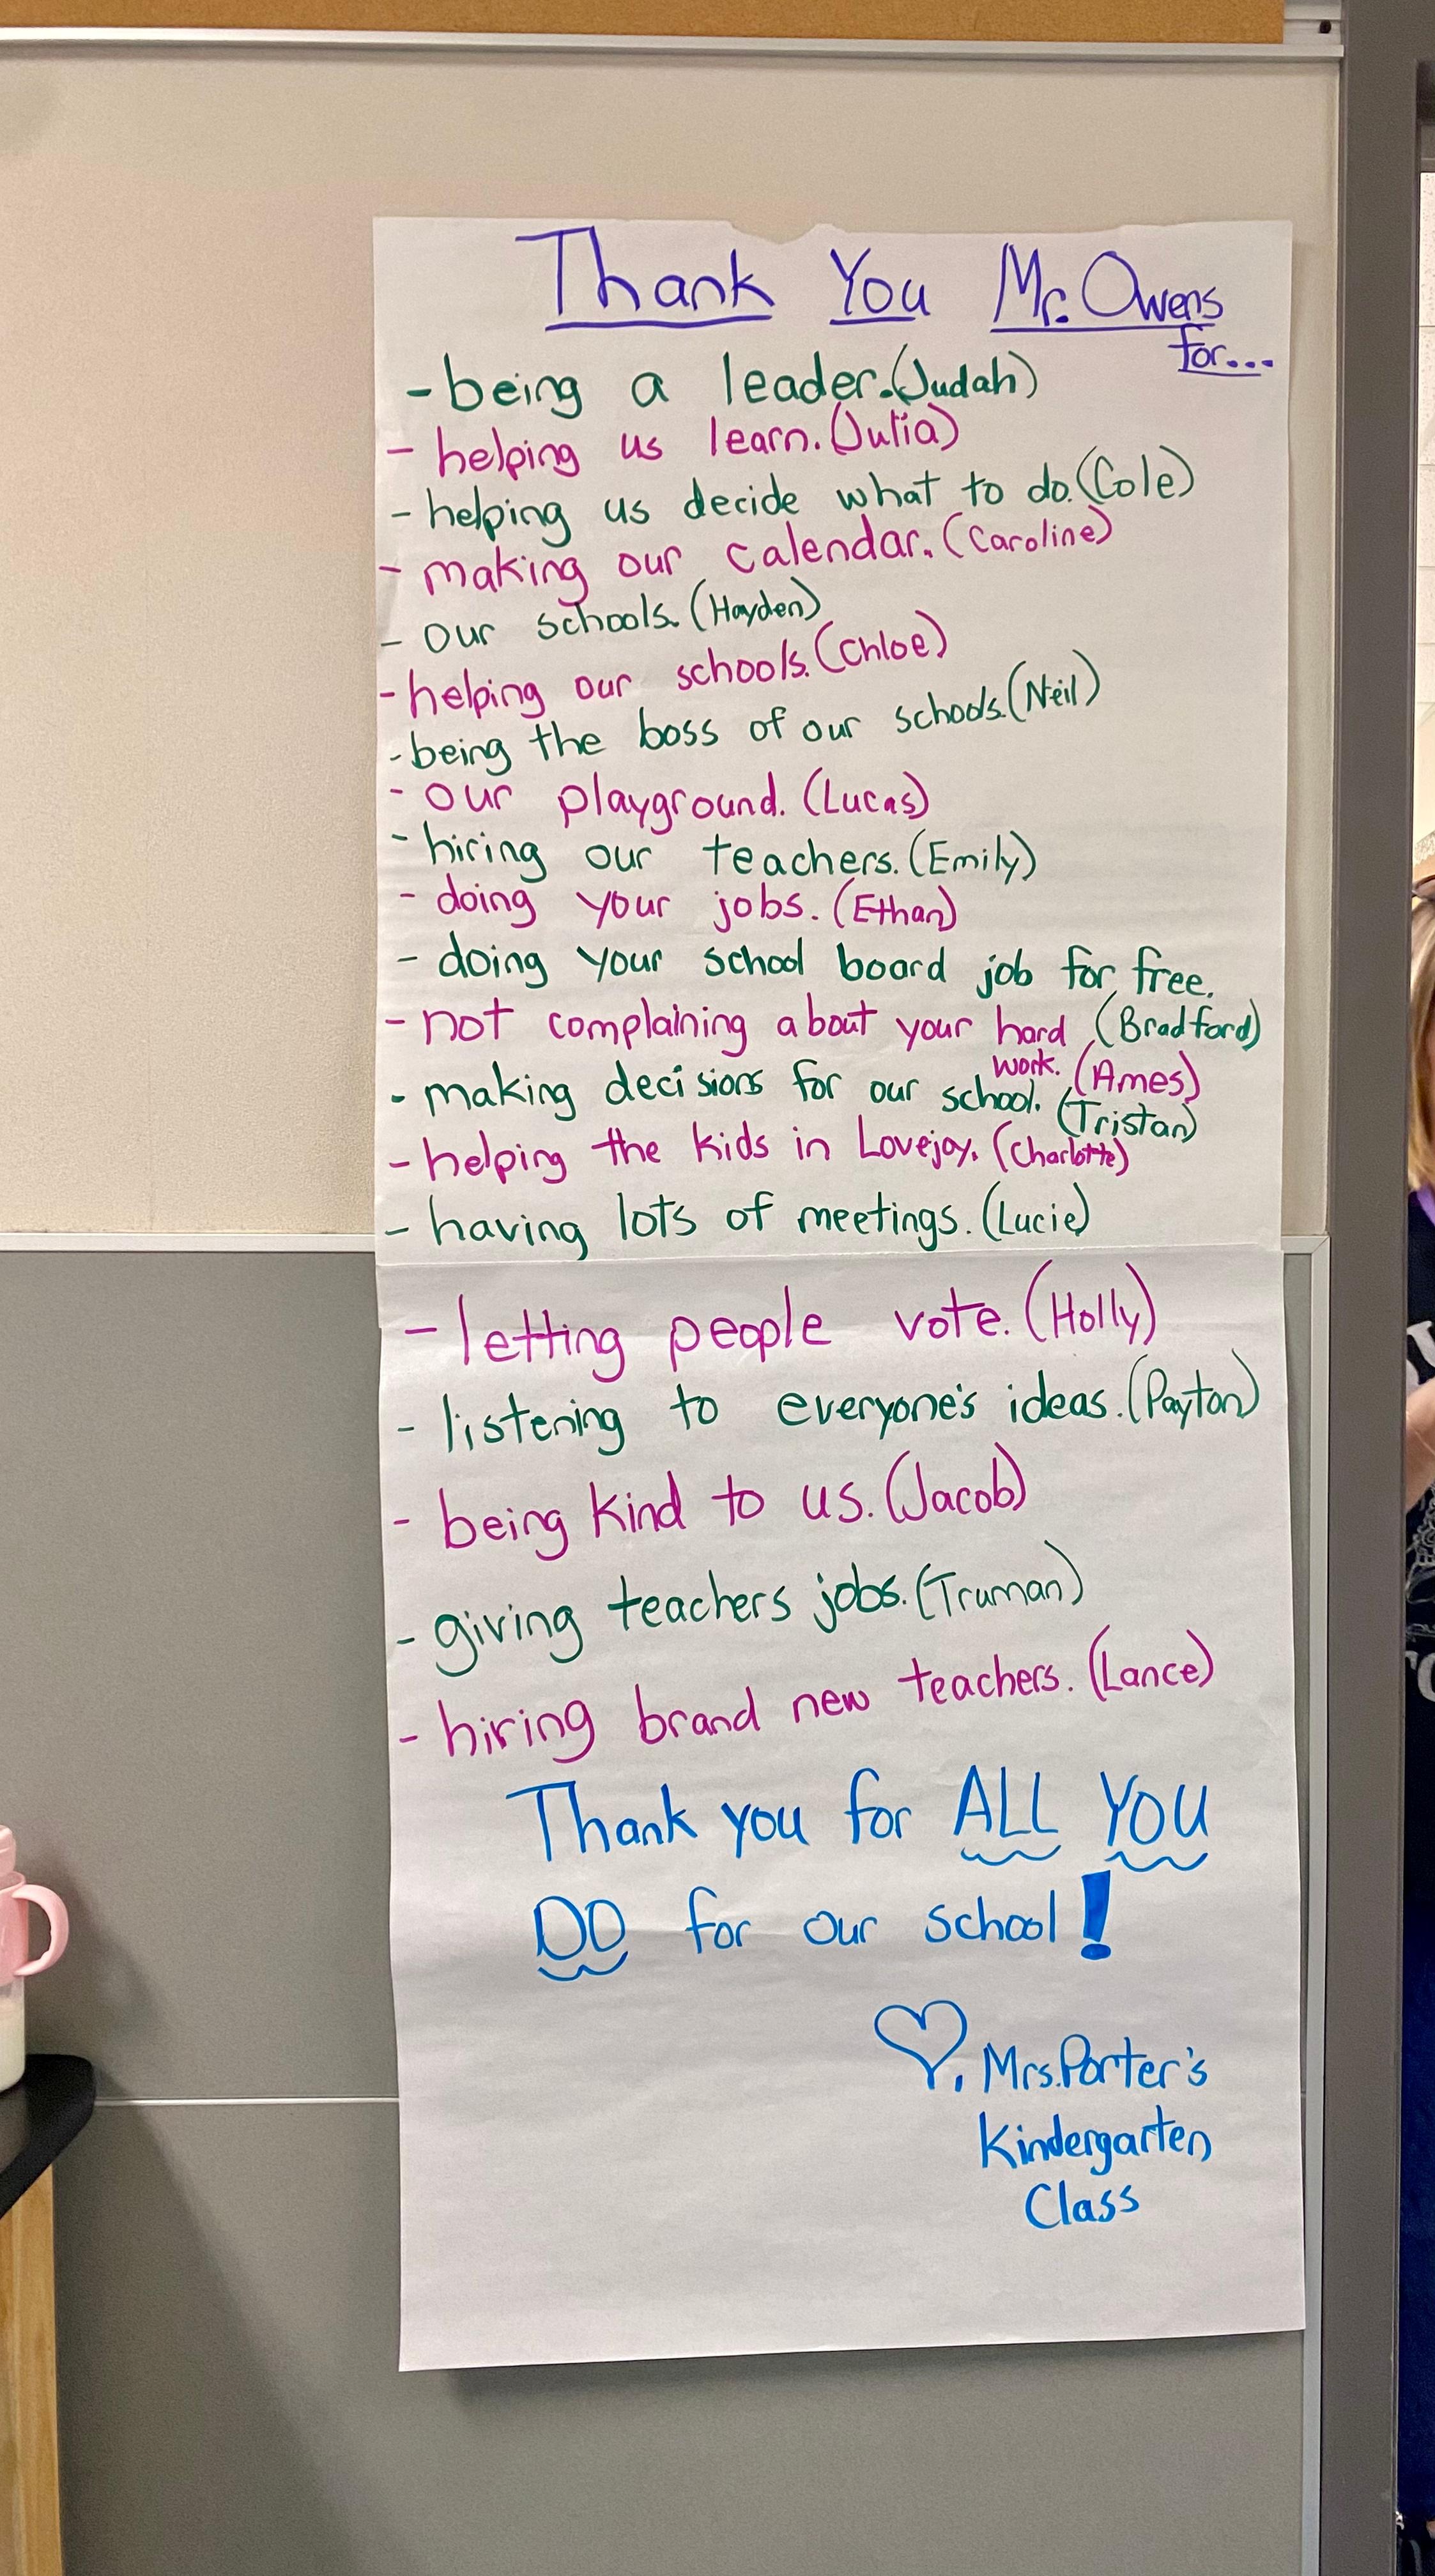 Thank You Mr. Owens
for...
- being a leader. (Judah)
- helping us learn. (Julia)
- helping us decide what to do. (Cole)
- making our calendar. (Caroline)
- our schools. (Hayden)
- helping our schools. (Chloe)
- being the boss of our schools. (Neil)
- our playground. (Lucas)
- hiring our teachers. (Emily)
- doing your jobs. (Ethan)
- doing your school board job for free.
(Bradford)
- not complaining about your hard
work. (Ames)
- making decisions for our school. (Tristan)
- helping the kids in Lovejoy. (Charlotte)
- having lots of meetings. (Lucie)
- letting people vote. (Holly)
- listening to everyone's ideas. (Payton)
- being kind to us. (Jacob)
- giving teachers jobs. (Truman)
- hiring brand new teachers. (Lance)
Thank you for ALL YOU
DO for our school!
♡, Mrs. Porter's
Kindergarten
Class